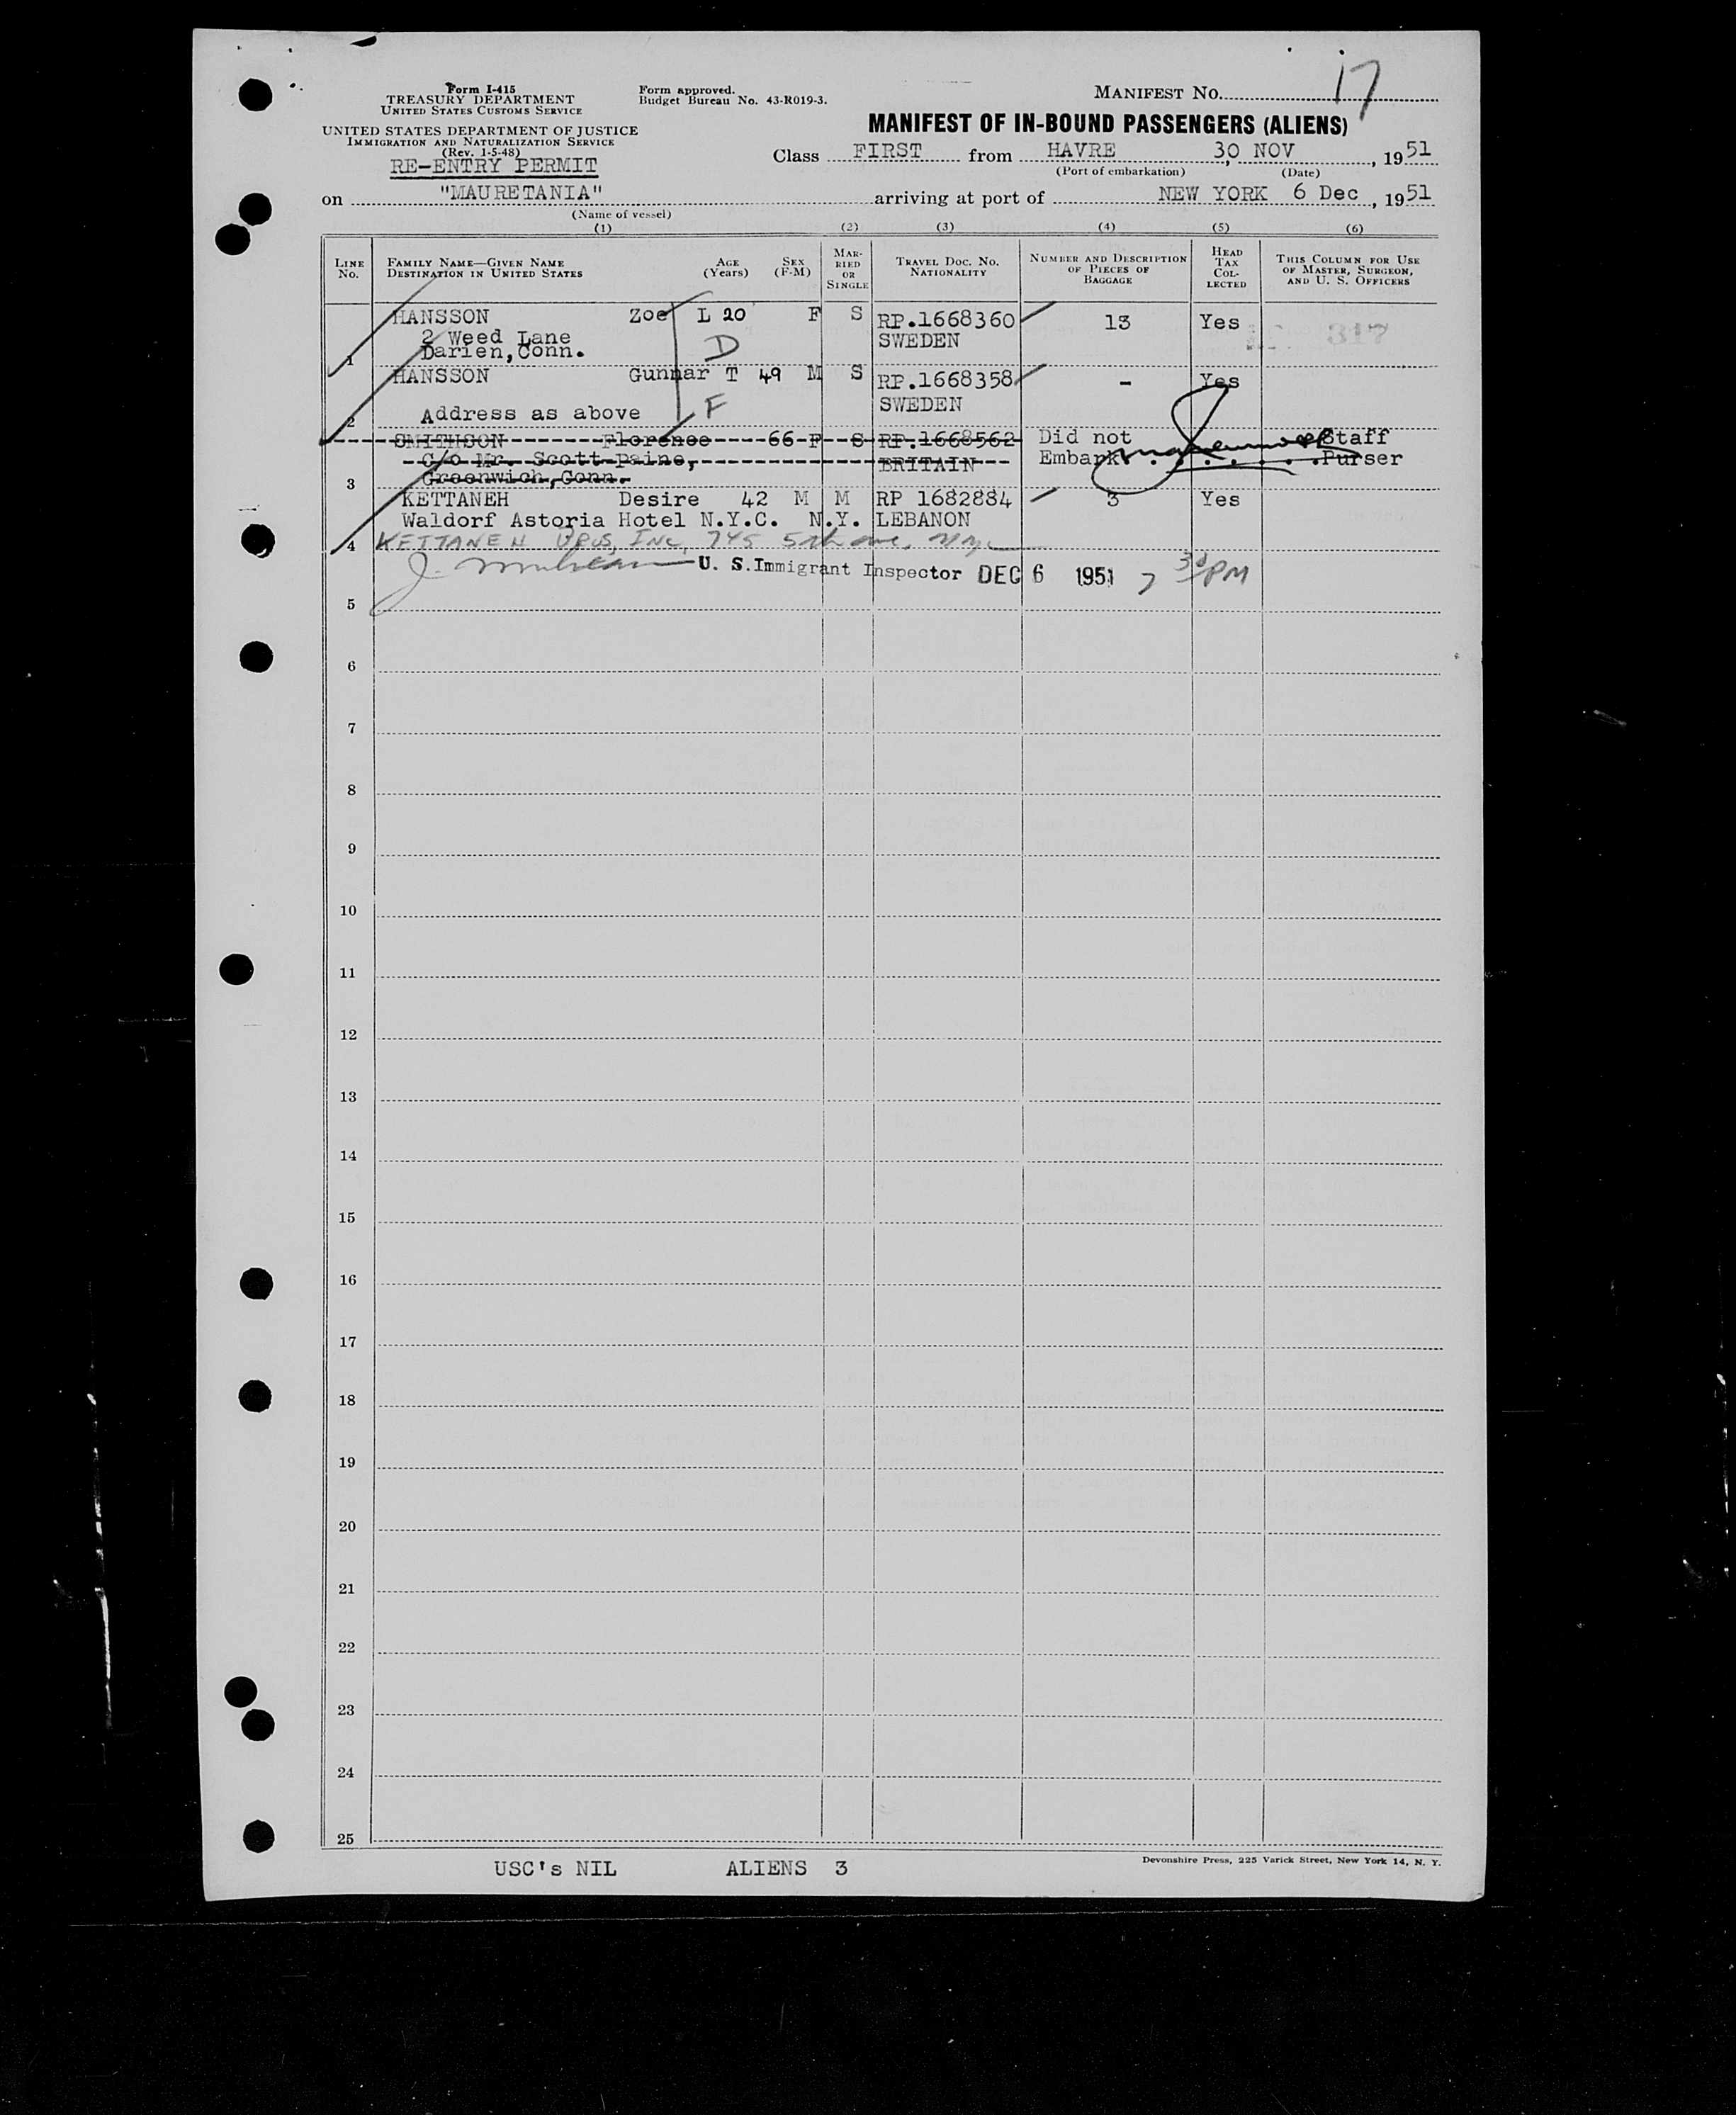 Form I-415
TREASURY DEPARTMENT
UNITED STATES CUSTOMS SERVICE
UNITED STATES DEPARTMENT OF JUSTICE
IMMIGRATION AND NATURALIZATION SERVICE
(Rev. 1-5-48)
RE-ENTRY PERMIT
Form approved.
Budget Bureau No. 43-R019-3.
MANIFEST No. 17
MANIFEST OF IN-BOUND PASSENGERS (ALIENS)
Class FIRST from HAVRE 30 NOV, 1951
(Port of embarkation) (Date)
on "MAURETANIA" arriving at port of NEW YORK 6 Dec, 1951
(Name of vessel)
(1) (2) (3) (4) (5) (6)
LINE No. FAMILY NAME—GIVEN NAME DESTINATION IN UNITED STATES AGE (Years) SEX (F-M) MARRIED OR SINGLE TRAVEL DOC. NO. NATIONALITY NUMBER AND DESCRIPTION OF PIECES OF BAGGAGE HEAD TAX COLLECTED THIS COLUMN FOR USE OF MASTER, SURGEON, AND U. S. OFFICERS
HANSSON Zoe L 20 F S RP.1668360 13 Yes 317
2 Weed Lane D SWEDEN
1 Darien, Conn.
HANSSON Gunnar T 49 M S RP.1668358 - Yes
2 Address as above F SWEDEN
SMITHSON Florence 66 F S RP.1668562 Did not Staff
C/o Mr. Scott-paine, BRITAIN Embark. Purser
3 Greenwich, Conn.
KETTANEH Desire 42 M M RP 1682884 3 Yes
Waldorf Astoria Hotel N.Y.C. N.Y. LEBANON
4 KETTANEH Inc, 745 5th ave.
U. S. Immigrant Inspector DEC 6 1951 7 30 PM
5
6
7
8
9
10
11
12
13
14
15
16
17
18
19
20
21
22
23
24
25
USC's NIL ALIENS 3
Devonshire Press, 225 Varick Street, New York 14, N. Y.